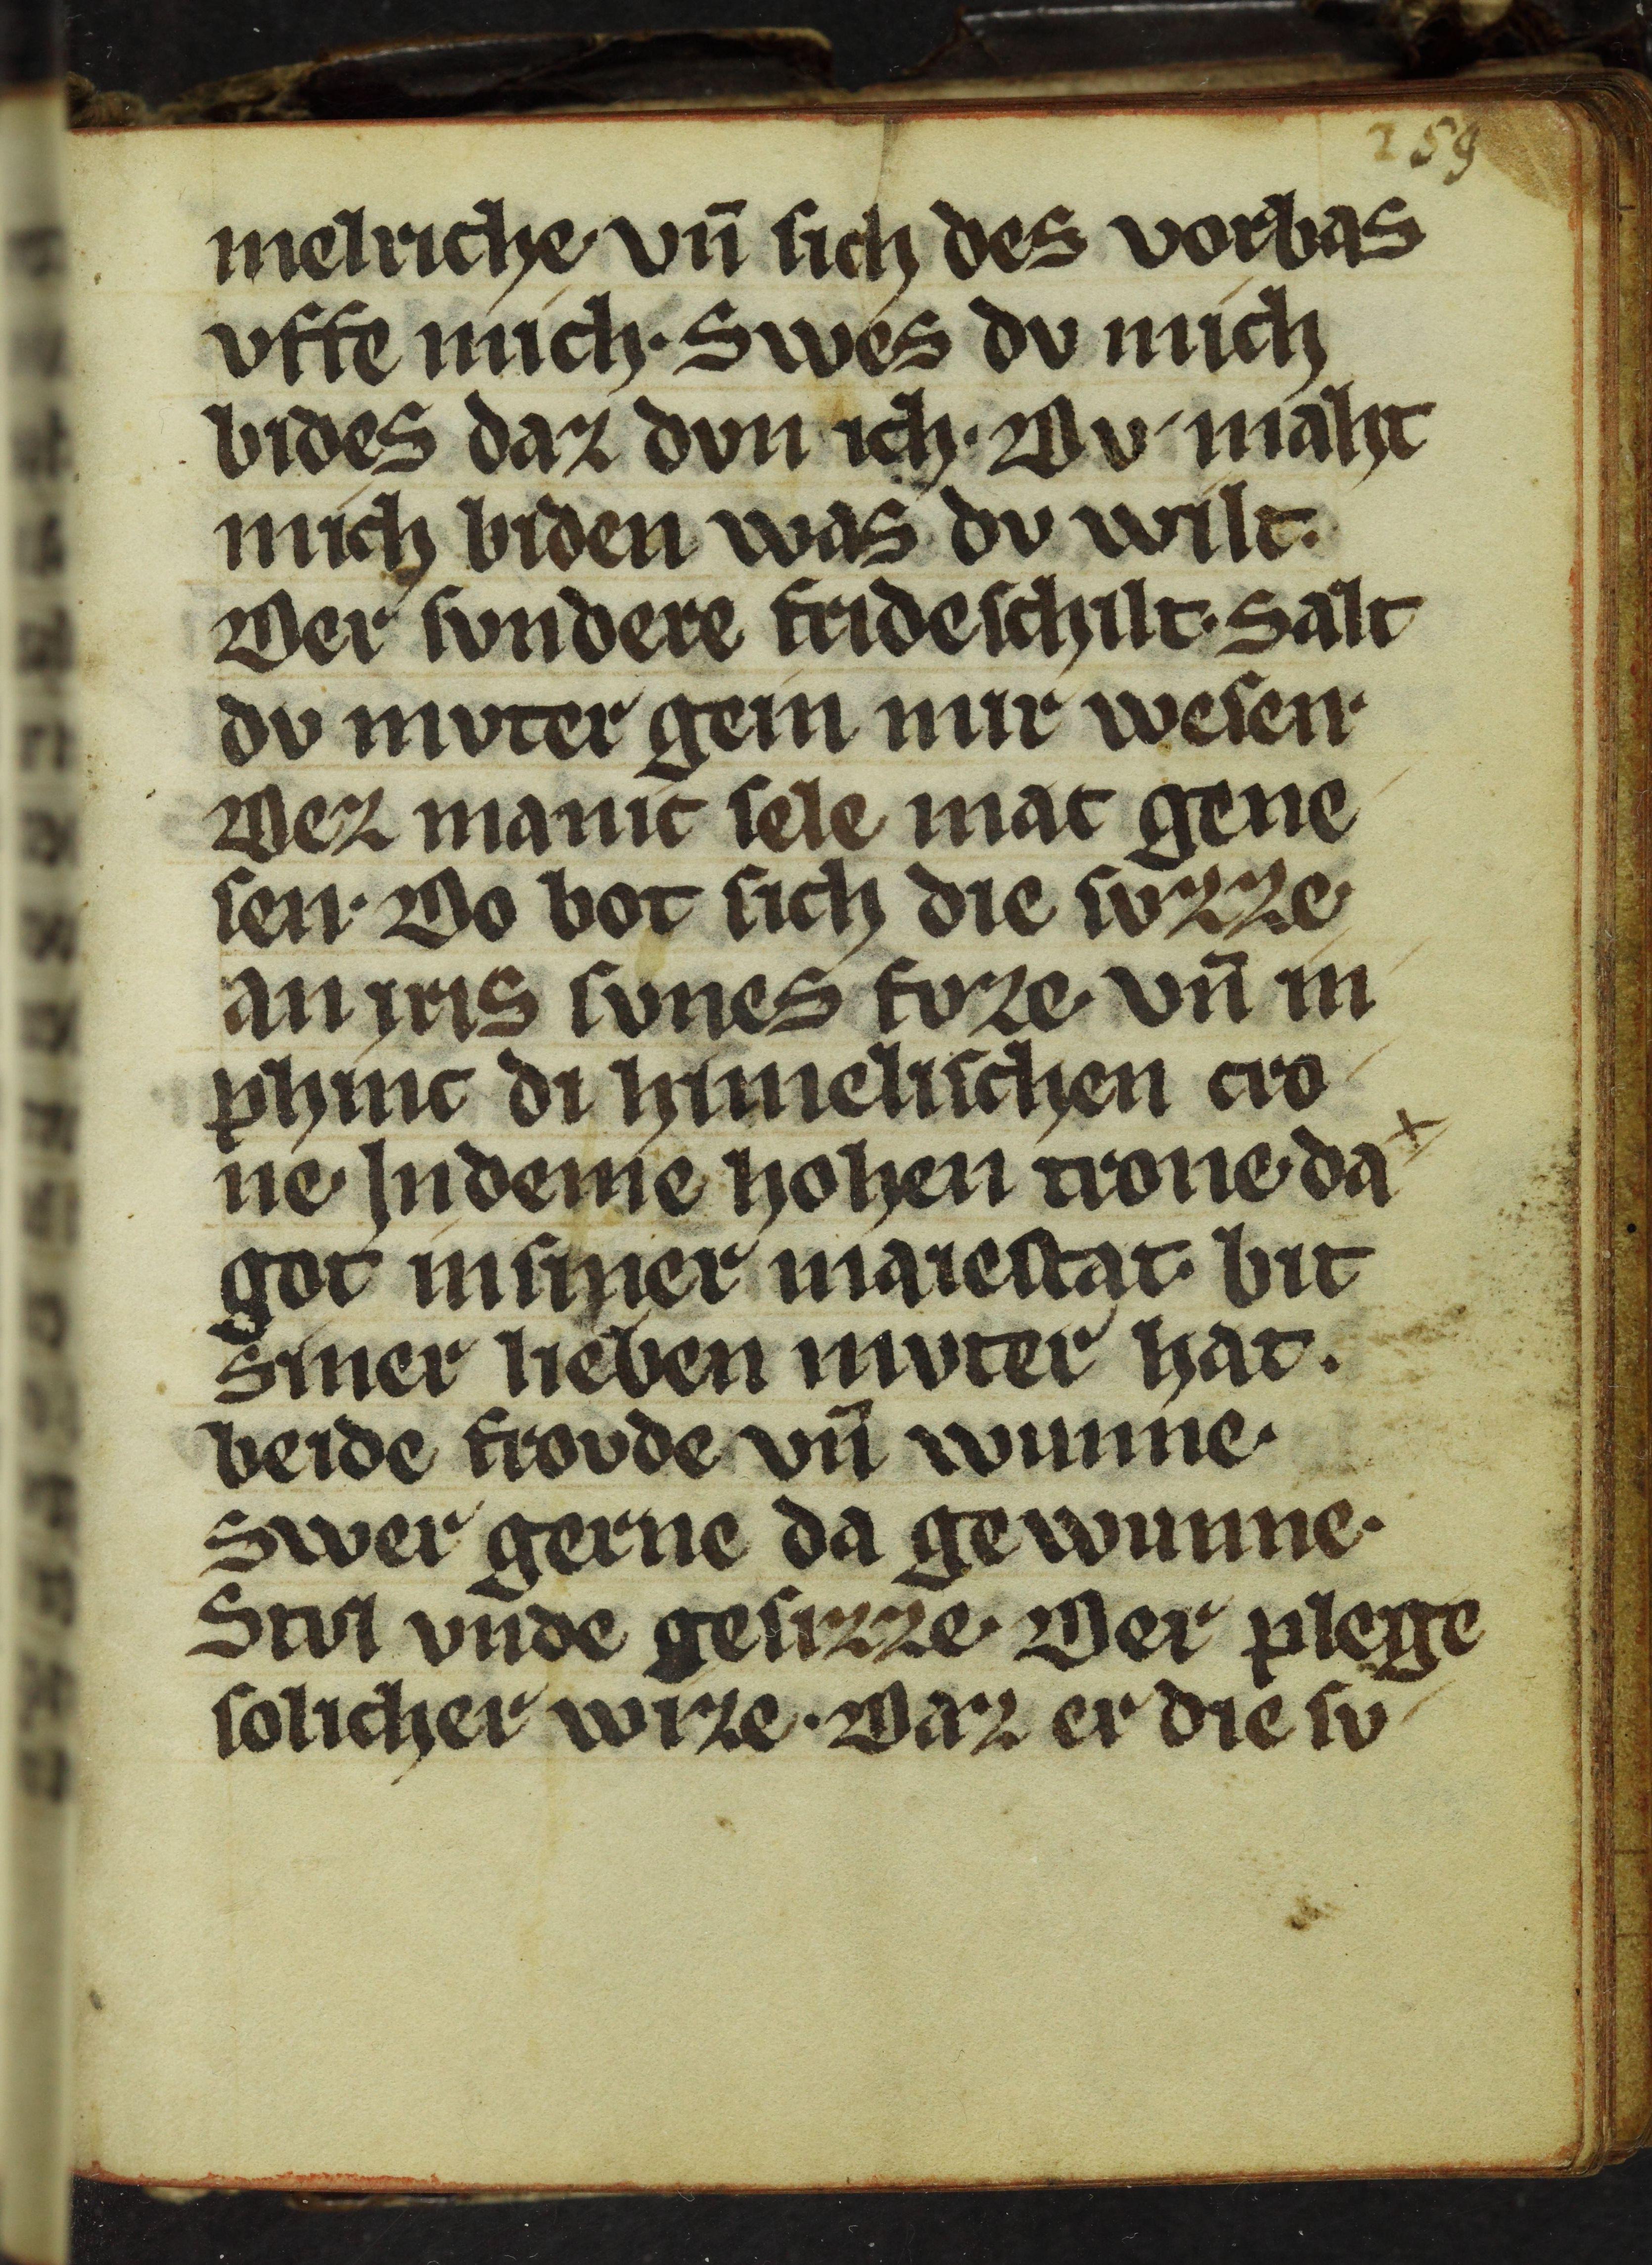 259
melriche· vn̄ sich des vorbas
vffe mich· Swes dv mich
bides daz dvn ich· Dv maht
mich biden was dv wilt·
Der svndere frideschilt· Salt
dv mvter gein mir wesen·
Dez manic sele mac gene
sen· Do bot sich die svzze·
an iris svnes fvze· vn̄ in
phinc di himelischen cro
ne· Jndeme hohen trone· da
got insiner maiestat· bit
siner lieben mvter hat·
beide frovde vn̄ wunne·
Swer gerne da gewunne·
Stvl vnde gesizze· Der plege
solicher wize· Daz er die sv